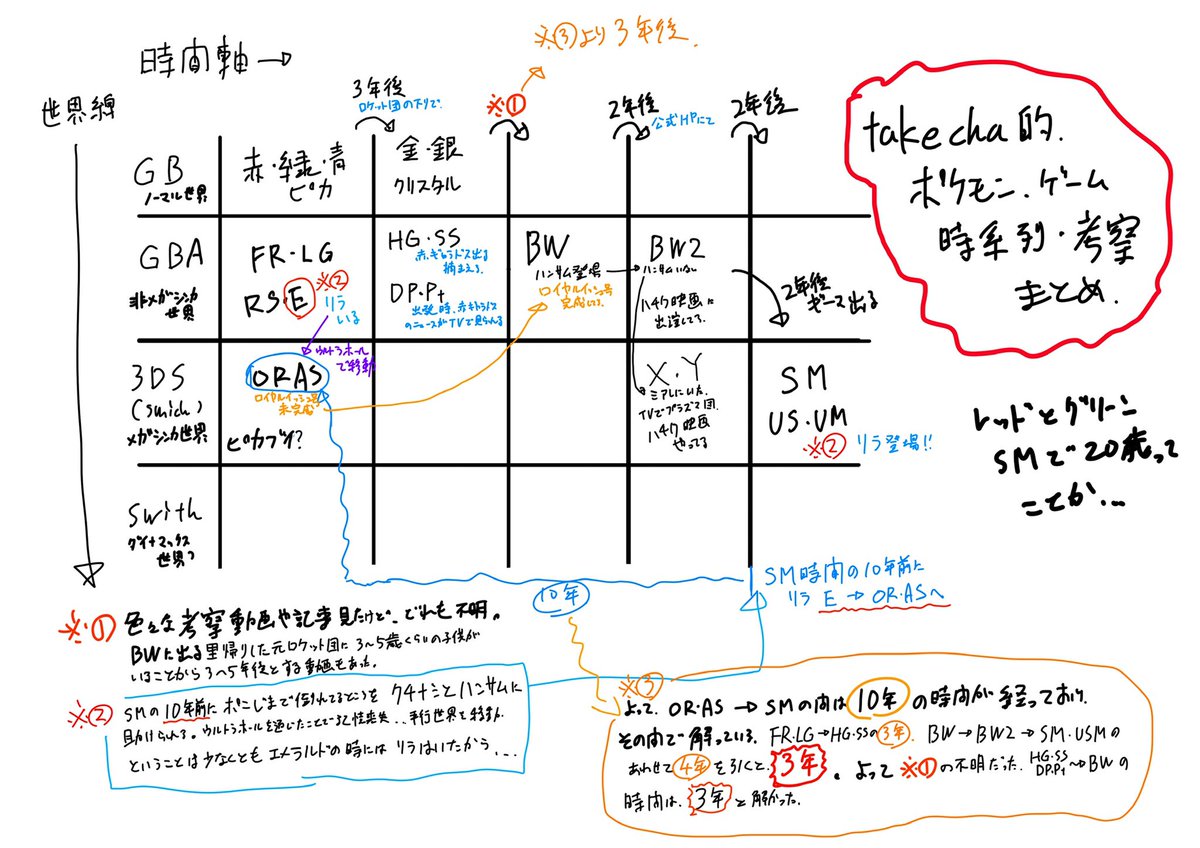 ※③より3年後.
時間軸→
世界線
3年後
ロケット団の下りで.
※①
2年後
公式HPにて
2年後
takecha的.
ポケモン.ゲーム
時系列・考察
まとめ.
GB
ノーマル世界
赤・緑・青
ピカ
金・銀
クリスタル
GBA
非メガシンカ
世界
FR・LG
RS・E
※②
リラ
いる
HG・SS
赤.ギャラドス出る
捕まえる.
DP・Pt
出発時、赤ギャラドス
のニュースがTVで見られる
BW
ハンサム登場
ロイヤルイッシュ号
完成してる.
BW2
ハンサムいない
ハチク映画に
出演してる.
2年後
ギース出る
3DS
(Swich)
メガシンカ世界
ORAS
ウルトラホール
で移動
ロイヤルイッシュ号
未完成
ピカブイ?
X・Y
ミアレにいた.
TVでプラズマ団.
ハチク映画
やってる
SM
US・UM
※② リラ登場!!
レッドとグリーン
SMで20歳って
ことか...
Swith
ダイナマックス
世界?
10年
SM時間の10年前に
リラ E→OR・ASへ
※① 色々な考察動画や記事見たけど、どれも不明。
BWに出る里帰りした元ロケット団に3〜5歳くらいの子供が
いることから3〜5年後とする動画もあった.
※② SMの10年前にポニじまで倒れてるところをクチナシとハンサムに
見つけられる.ウルトラホールを通じたことで
平行世界を移動.
ということは少なくともエメラルドの時にはリラはいたから...
※③
よって、OR・AS→SMの間は10年の時間が経っており
その間で解っている.FR・LG→HG・SSの3年.BW→BW2→SM・USMの
あわせて4年を引くと、3年.よって※①の不明だった.HG・SS
DP・Pt〜BWの
時間は、3年と解かった.